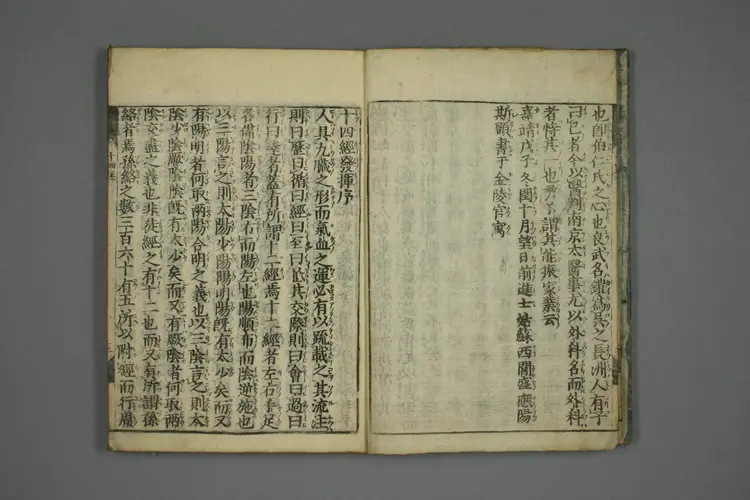 也卽伯仁氏之心也良武名鎧爲長之長洲人有子
曰己者今以醫判南京太醫事尤以外科名而外科
者特其一也予謂其能振家業云
嘉靖戊子冬閏十月望日前進士姑蘇西閶盛應陽
斯顯書于金陵官寓
十四經發揮序
人具九臓之形而氣血之運必有以疏載之其流注
則曰歷曰循曰經曰至曰抵其交際則曰會曰過曰
行曰達者蓋有所謂十二經焉十二經者左右手足
各備陰陽者三陰右而陽左也陽順布而陰逆施也
以三陽言之則太陽少陽陽明陽旣有太少矣而又
有陽明者何取兩陽合明之義也以三陰言之則太
陰少陰厥陰陰旣有太少矣而又有厥陰者何取兩
陰交盡之義也非徒經之有十二也而又有所謂孫
絡者焉孫絡之數三百六十有五所以附經而行周